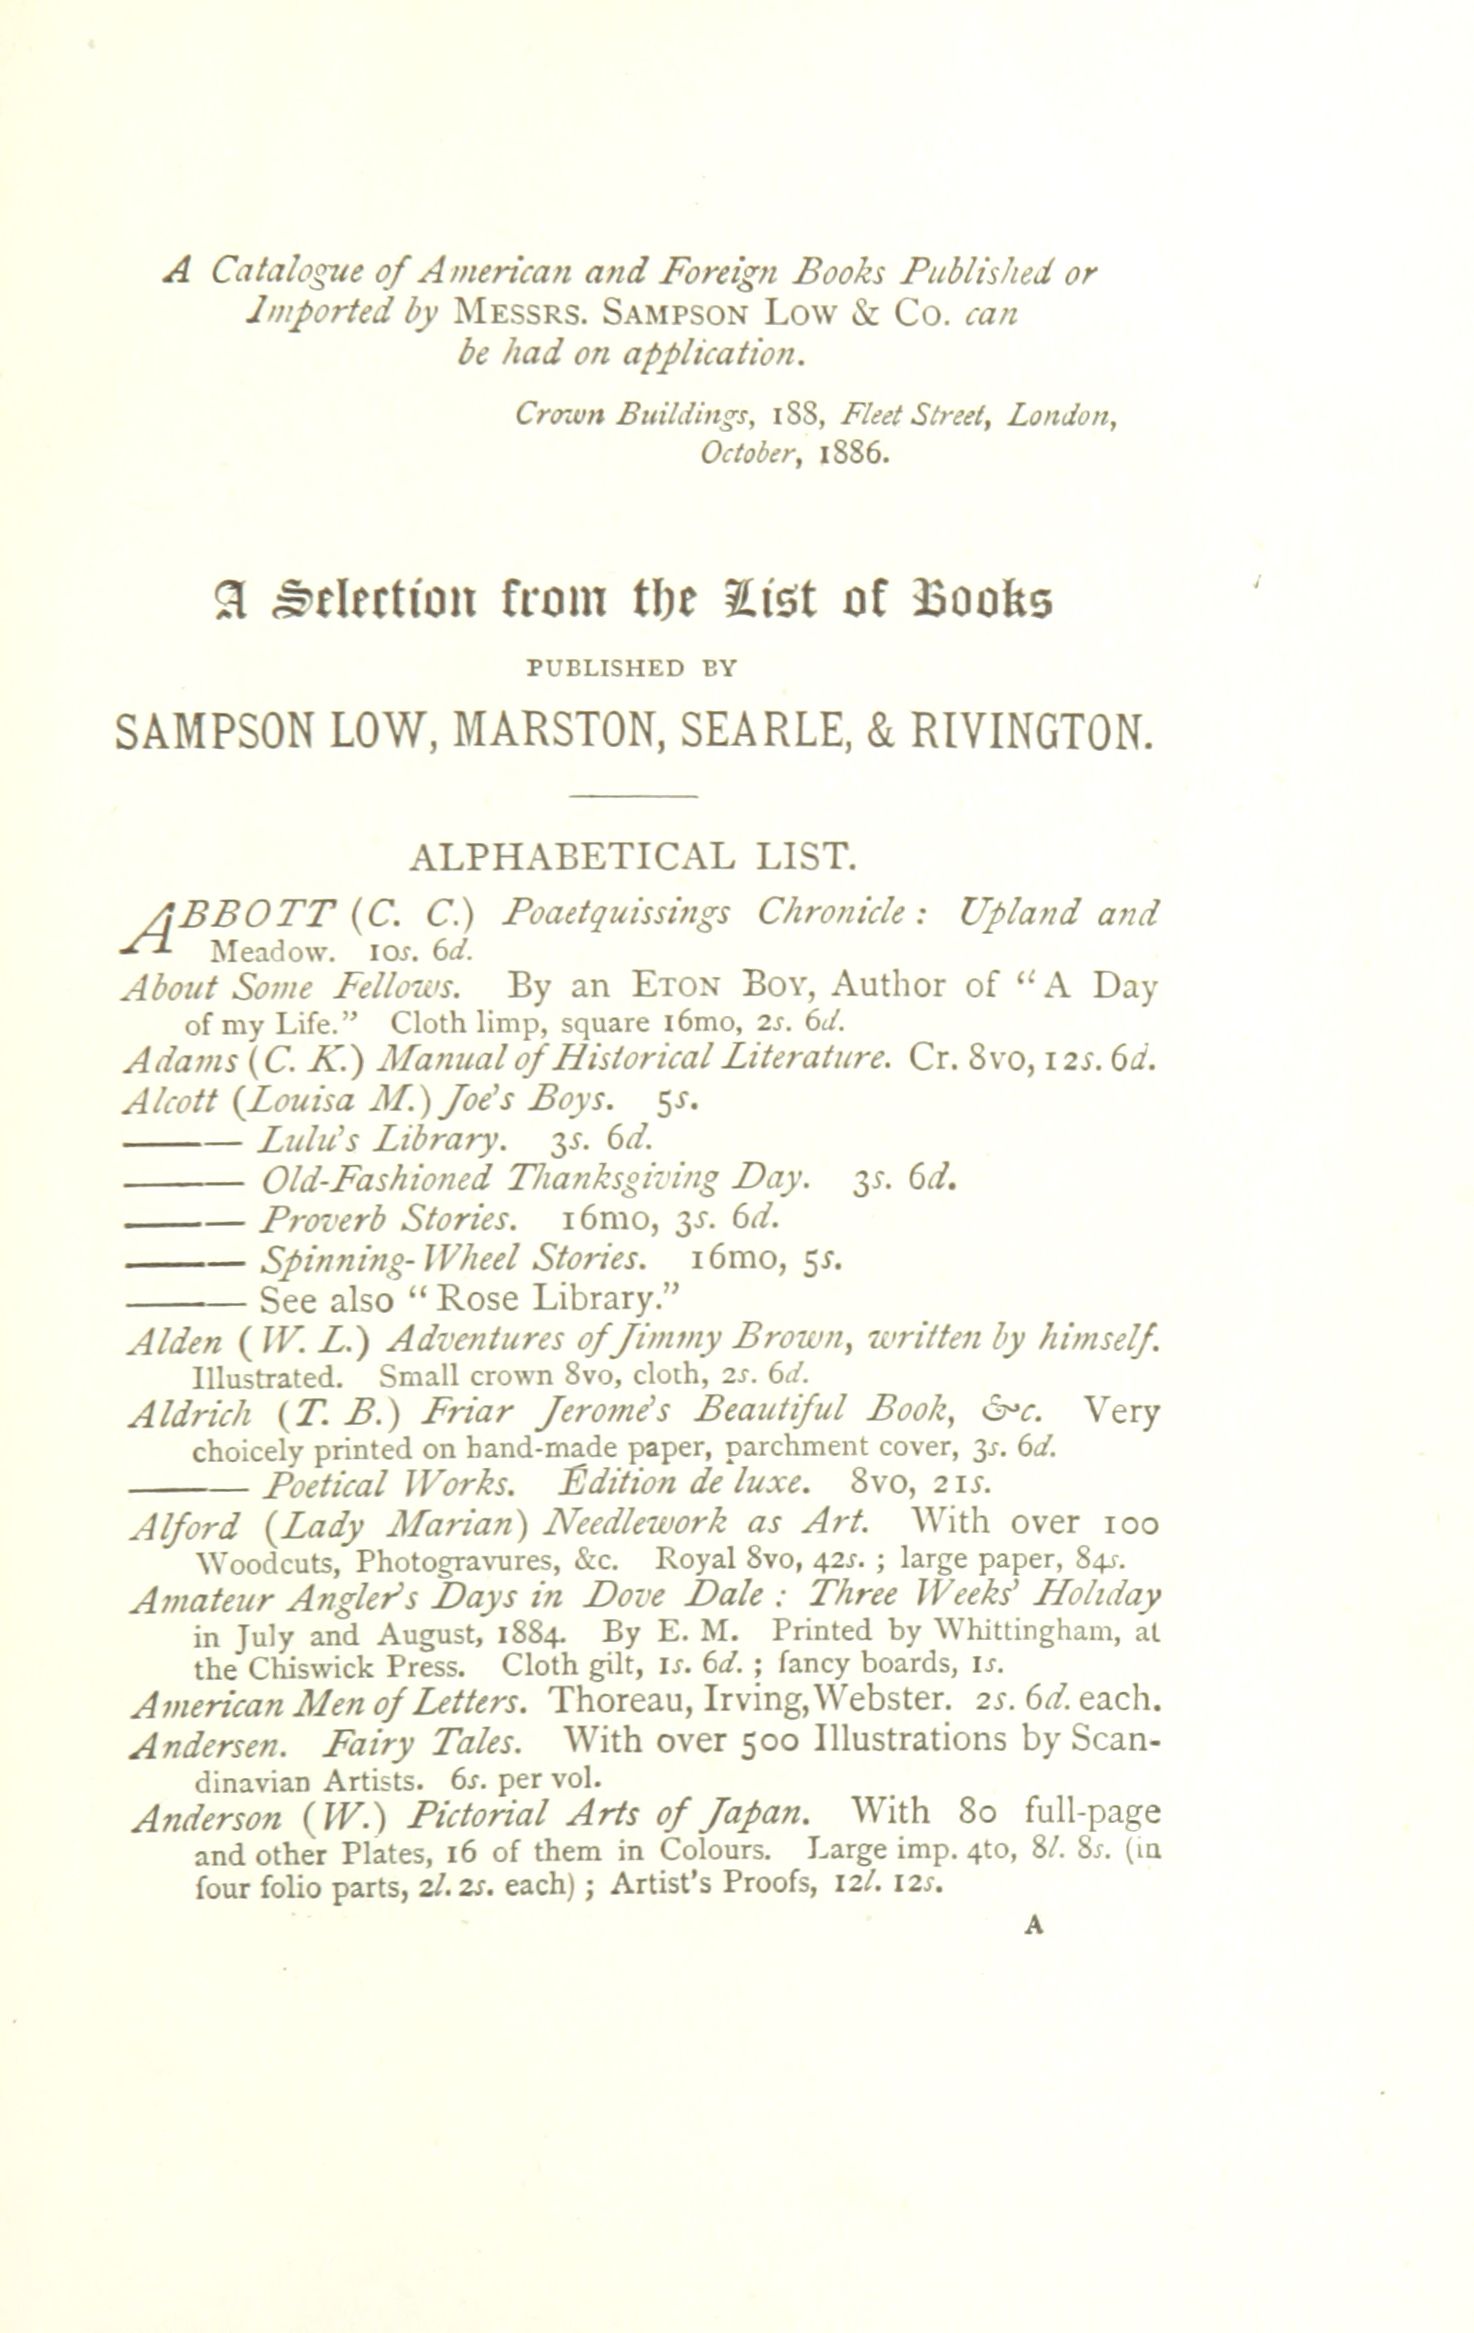 A Catalogue of American and Foreign Books Published or
Imported by MESSRS. SAMPSON LOW & CO. can
be had on application.
Crown Buildings, 188, Fleet Street, London,
October, 1886.
A Selection from the List of Books
PUBLISHED BY
SAMPSON LOW, MARSTON, SEARLE, & RIVINGTON.
ALPHABETICAL LIST.
ABBOTT (C. C.) Poaetquissings Chronicle : Upland and
Meadow. 10s. 6d.
About Some Fellows. By an ETON BOY, Author of “A Day
of my Life.” Cloth limp, square 16mo, 2s. 6d.
Adams (C. K.) Manual of Historical Literature. Cr. 8vo, 12s. 6d.
Alcott (Louisa M.) Joe's Boys. 5s.
——— Lulu's Library. 3s. 6d.
——— Old-Fashioned Thanksgiving Day. 3s. 6d.
——— Proverb Stories. 16mo, 3s. 6d.
——— Spinning-Wheel Stories. 16mo, 5s.
——— See also “Rose Library.”
Alden (W. L.) Adventures of Jimmy Brown, written by himself.
Illustrated. Small crown 8vo, cloth, 2s. 6d.
Aldrich (T. B.) Friar Jerome's Beautiful Book, &c. Very
choicely printed on hand-made paper, parchment cover, 3s. 6d.
——— Poetical Works. Édition de luxe. 8vo, 21s.
Alford (Lady Marian) Needlework as Art. With over 100
Woodcuts, Photogravures, &c. Royal 8vo, 42s. ; large paper, 84s.
Amateur Angler's Days in Dove Dale : Three Weeks' Holiday
in July and August, 1884. By E. M. Printed by Whittingham, at
the Chiswick Press. Cloth gilt, 1s. 6d. ; fancy boards, 1s.
American Men of Letters. Thoreau, Irving, Webster. 2s. 6d. each.
Andersen. Fairy Tales. With over 500 Illustrations by Scan-
dinavian Artists. 6s. per vol.
Anderson (W.) Pictorial Arts of Japan. With 80 full-page
and other Plates, 16 of them in Colours. Large imp. 4to, 8l. 8s. (in
four folio parts, 2l. 2s. each) ; Artist's Proofs, 12l. 12s.
A